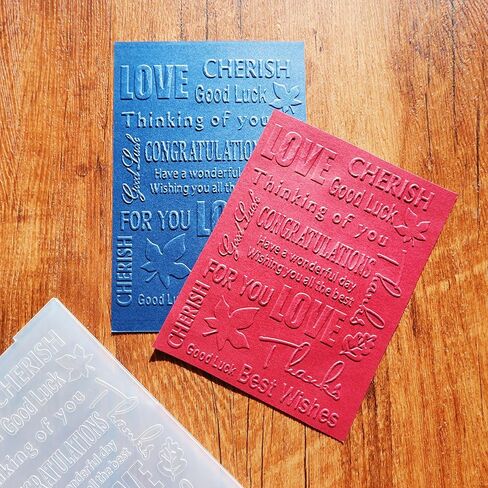 LOVE
CHERISH
Good Luck
Thinking of you
Good Luck
CONGRATULATION
Have a wonderful
Wishing you all the
FOR YOU
LO
CHERISH
Good Luck
LOVE
CHERISH
Good Luck
Thinking of you
Good Luck
CONGRATULATIONS
Have a wonderful day
Wishing you all the best
Thanks
FOR YOU
LOVE
CHERISH
Thanks
Good Luck
Best Wishes
CHERISH
Good Luck
Thinking of you
Thanks
NGRATULATIONS
wonderful day
you all the best
YOU
LOVE